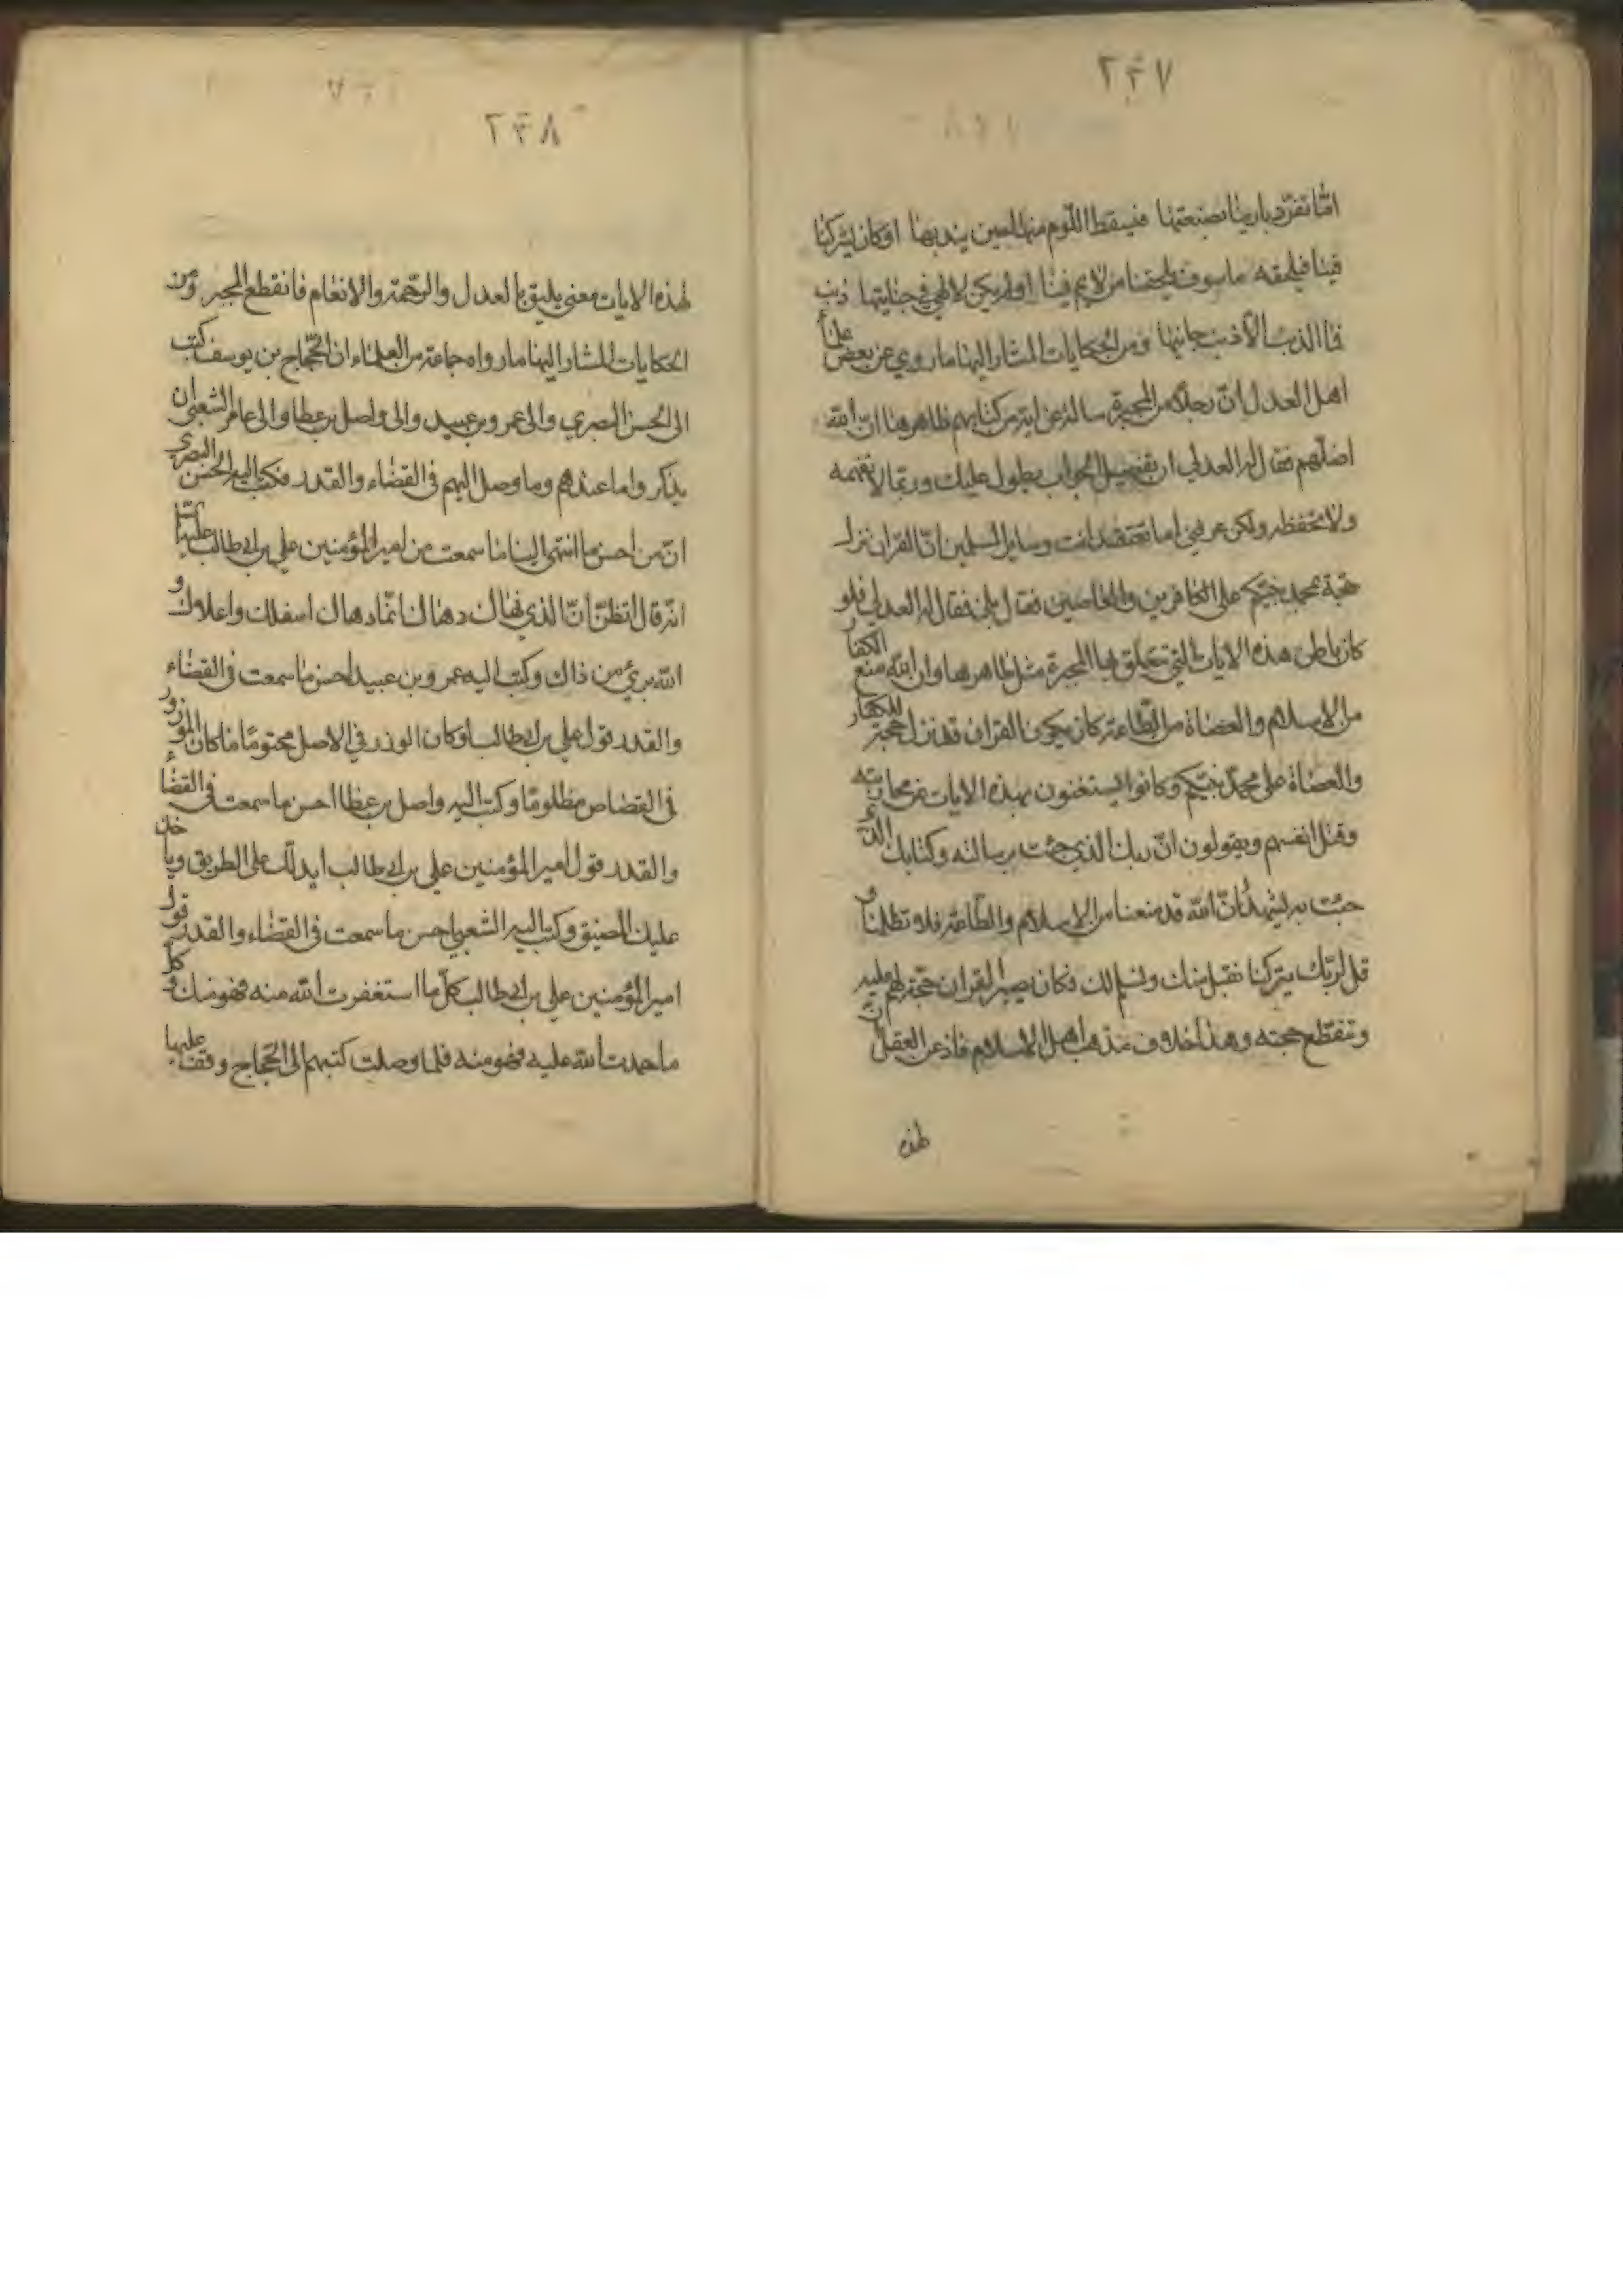 ٢٤٧
اما تفرد بارينا بصنعتها فيسقط اللوم منها حين يبديها او كان يشركنا
فينا فيلحقه ما سوف يلحقنا من لايم فينا او لم يكن لالهي في جنايتها ذنب
فما الذنب الا ذنب جانيها ومن الحكايات المشار اليها ما روي عن بعض علماء
اهل العدل ان رجلا من المجبرة ساله عن اية من كتابهم ظاهرها ان الله
اضلهم فقال له العدلي ان تفصيل الجواب يطول عليك وربما لا تفهمه
ولا تحفظه ولكن عرفني اما تعتقد انت وساير المسلمين ان القران نزل
حجة لمحمد نبيكم على الكافرين والعاصين فقال بلى فقال له العدلي فلو
كان باطن هذه الايات التي تتعلق بها المجبرة مثل ظاهرها وان الله منع الكفار
من الاسلام والعصاة من الطاعة كان يكون القران قد نزل حجة للكفار
والعصاة على محمد نبيكم وكانوا يستغنون بهذه الايات عن محاربته
وقتل انفسهم ويقولون ان ربك الذي جئت برسالته وكتابك الذي
جئت به يشهد ان الله قد منعنا من الاسلام والطاعة فلا تظلمنا و
قل لربك يتركنا نقبل منك ونسلم لك فكان يصير القران حجة لهم عليه
وتنقطع حجته وهذا خلاف مذهب اهل الاسلام فاذعن العقل ان
لهذه
٢٤٨
لهذه الايات معنى يليق بالعدل والرحمة والانعام فانقطع المجبر ومن
الحكايات المشار اليها ما رواه جماعة من العلماء ان الحجاج بن يوسف كتب
الى الحسن البصري والى عمرو بن عبيد والى واصل بن عطا والى عامر الشعبي ان
يذكروا ما عندهم وما وصل اليهم في القضاء والقدر فكتب اليه الحسن البصري
ان من احسن ما انتهى الينا ما سمعت من امير المؤمنين علي بن ابي طالب عليه السلام
انه قال اتظن ان الذي نهاك دهاك انما دهاك اسفلك واعلاك و
الله برئ من ذاك وكتب اليه عمرو بن عبيد احسن ما سمعت في القضاء
والقدر قول علي بن ابي طالب لو كان الوزر في الاصل محتوما ما كان الموزور
في القصاص مظلوما وكتب اليه واصل بن عطا احسن ما سمعت في القضاء
والقدر قول امير المؤمنين علي بن ابي طالب ايدلك على الطريق وياخذ
عليك المضيق وكتب اليه الشعبي احسن ما سمعت في القضاء والقدر قول
امير المؤمنين علي بن ابي طالب كل ما استغفرت الله منه فهو منك وكل
ما حمدت الله عليه فهو منه فلما وصلت كتبهم الى الحجاج ووقف عليها